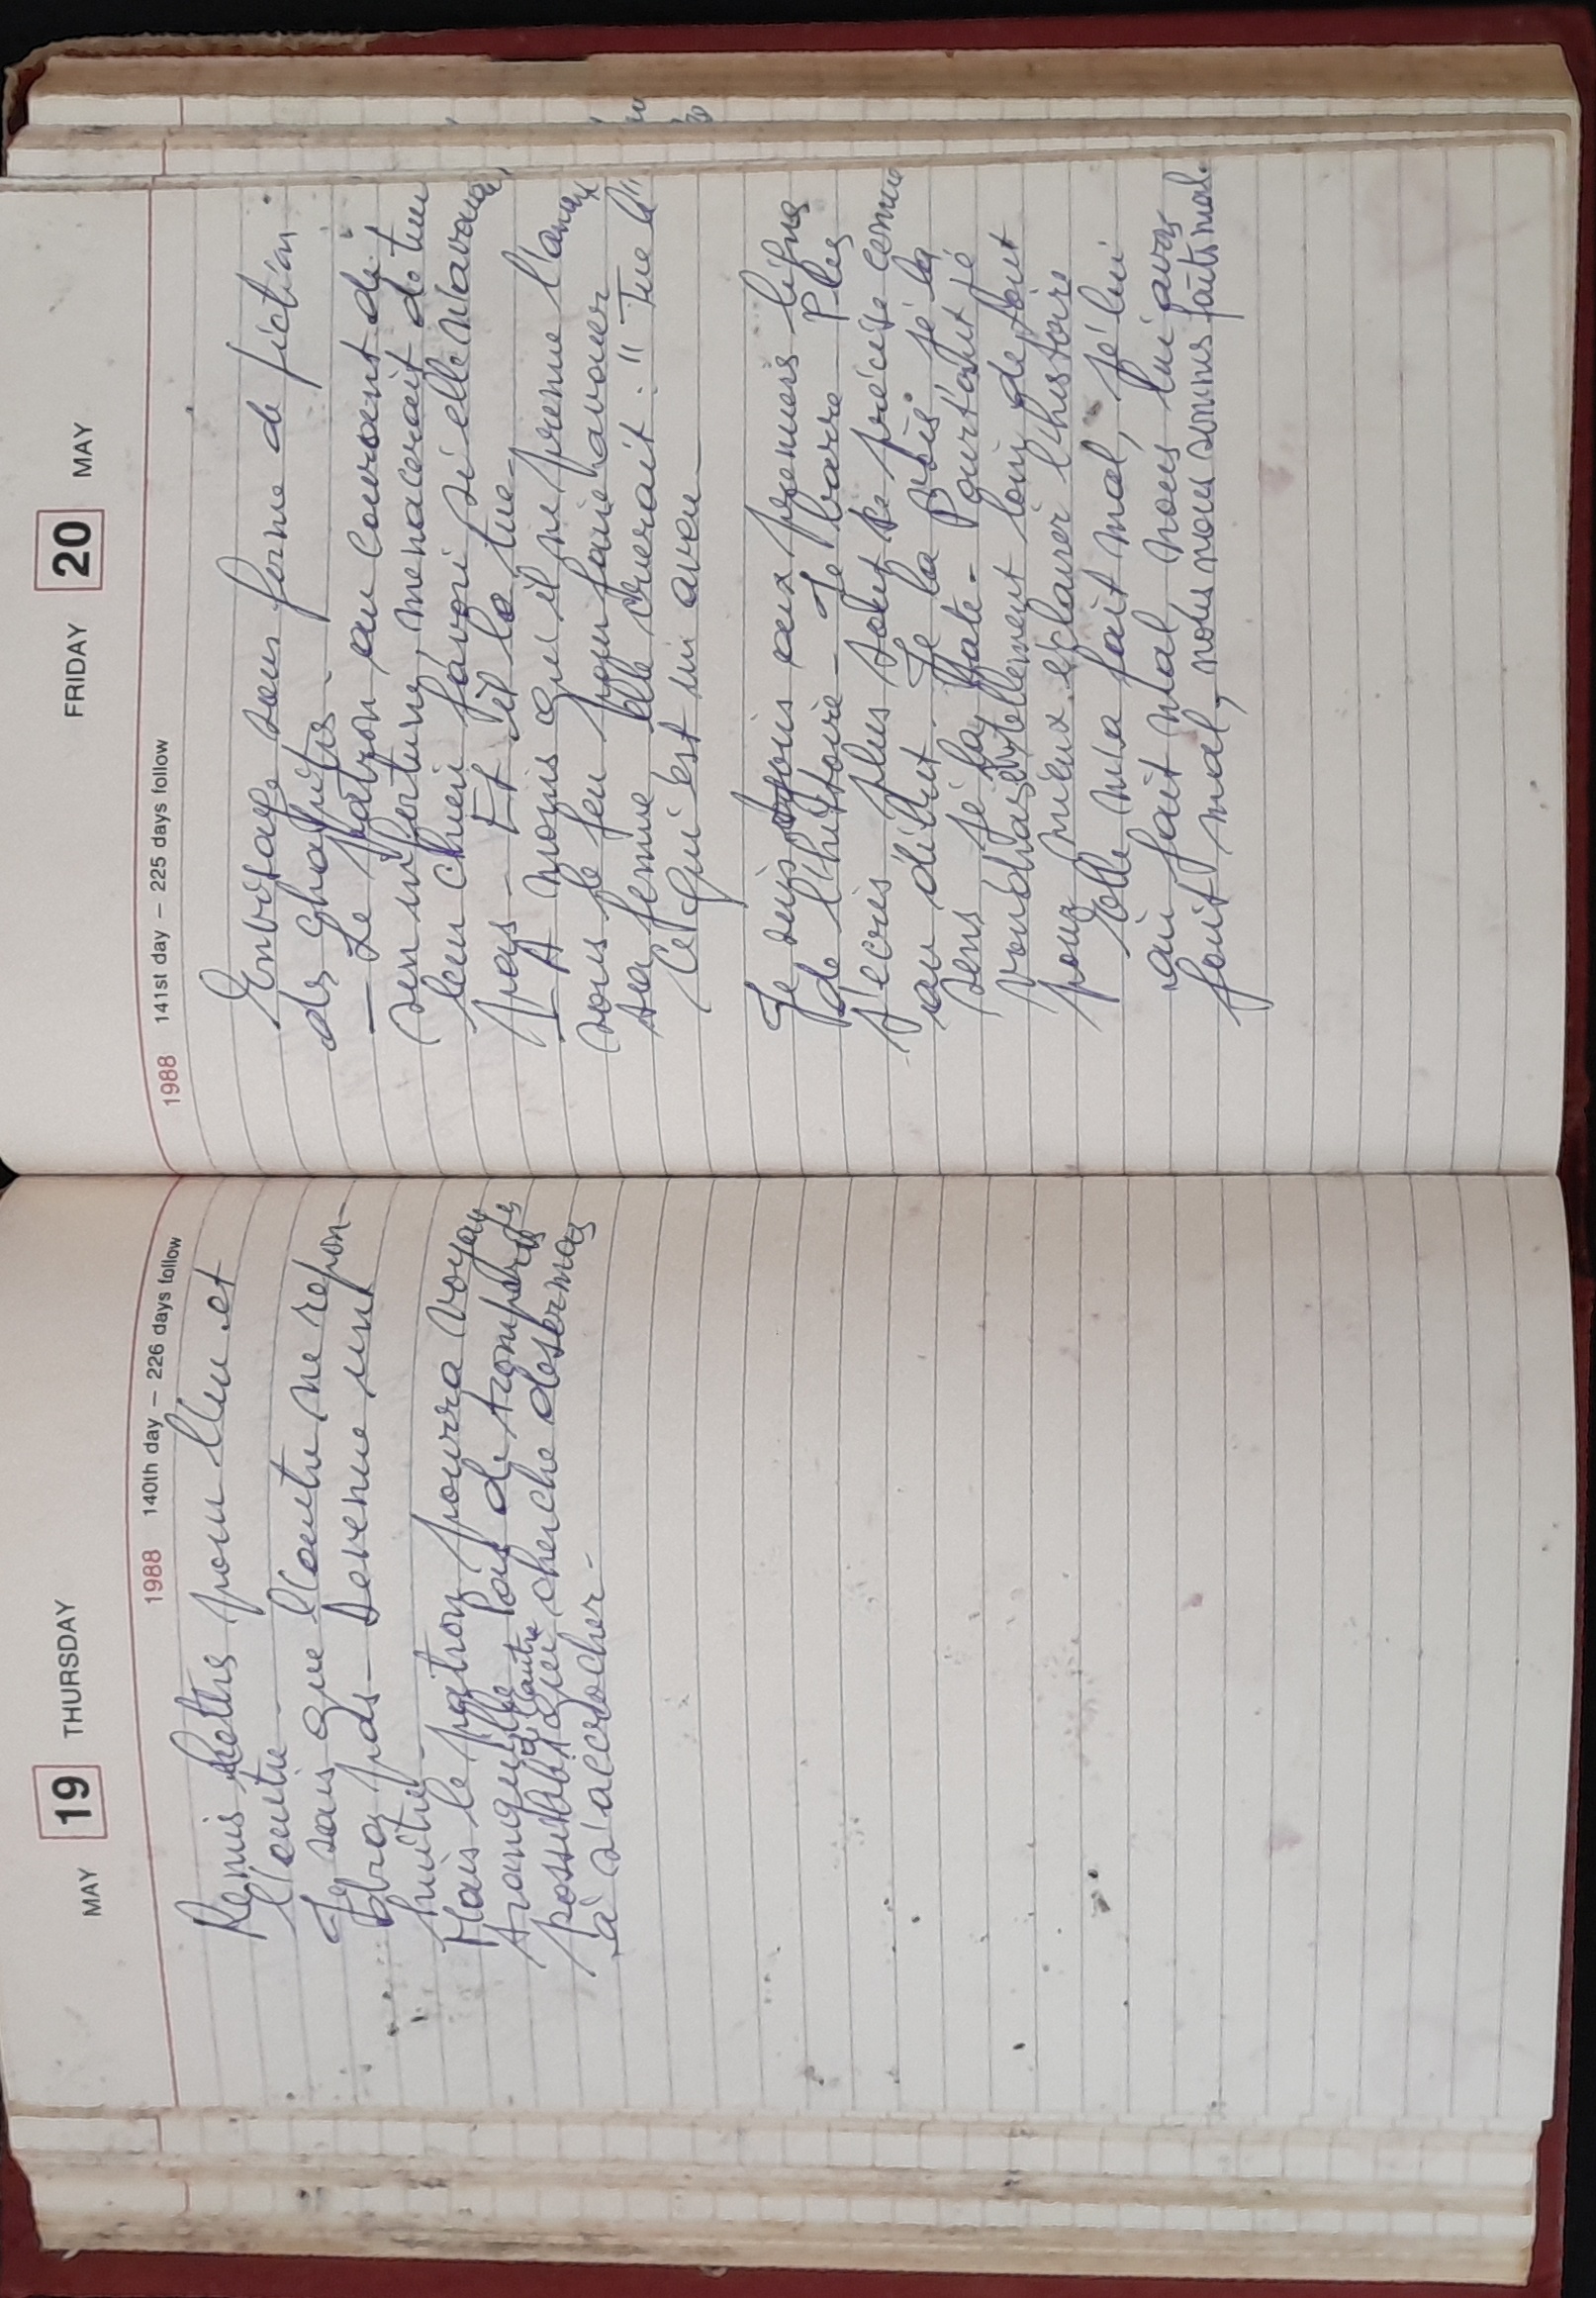 MAY 19 THURSDAY
1988 140th day – 226 days follow
Remis lettres pour l'un et
l'autre
Je sais que l'autre ne répon-
dra pas – Devenue une
huître.
Mais le patron pourra voyag
tranquille pas de trompes
possibl à l'autre cherche désormais
à s'accrocher –
FRIDAY 20 MAY
1988 141st day – 225 days follow
Envisage sous forme de fiction
des chapitres.
– Le patron au courant de
son infortune, menacerait de tuer
leur chien favori si elle n'avoue
pas – Et il le tue –
– A moins qu'il ne prenne l'amant
sous le feu pour faire avouer
sa femme elle crierait : " Tue le"
Ce qui est un aveu –
Je suis aux premiers lignes
de l'histoire – Je barre Plus
j'écris plus tout se précise comme
au début. Je la vois. Je la
sens je la hate – Pourtant je
voudrais être tellement loin de tout
pour mieux éclairer l'histoire
Elle m'a fait mal, je lui
ai fait mal nous lui avons
fait mal, nous nous sommes faits mal.